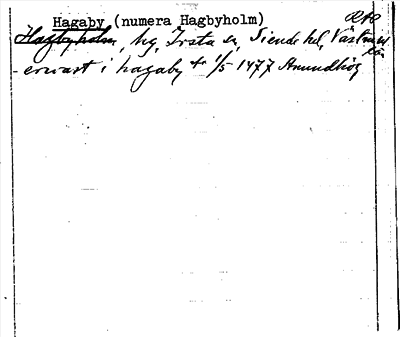 Hagaby (numera Hagbyholm)
RAO
Hagbyholm, hg, Irsta sn, Siende hd, Västman
län
- erwast i hagaby + 1/5 1477 Amundhög